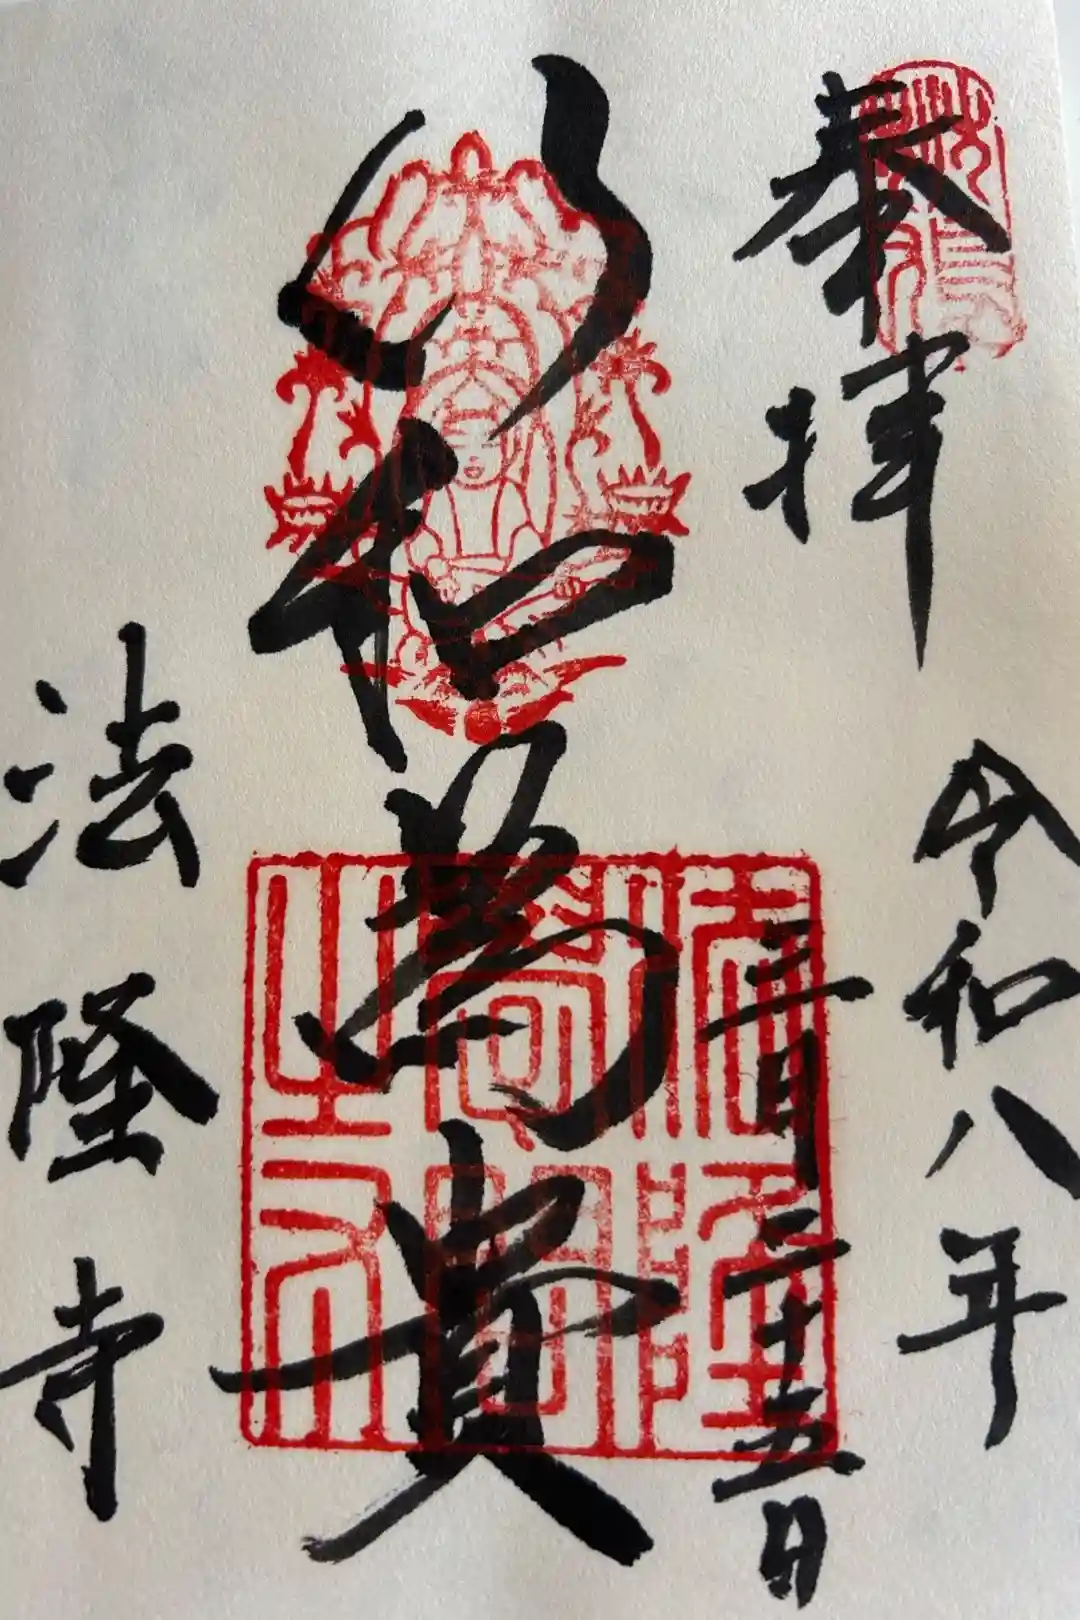 奉拝
令和八年
三月二十五日
以和為貴
法隆寺